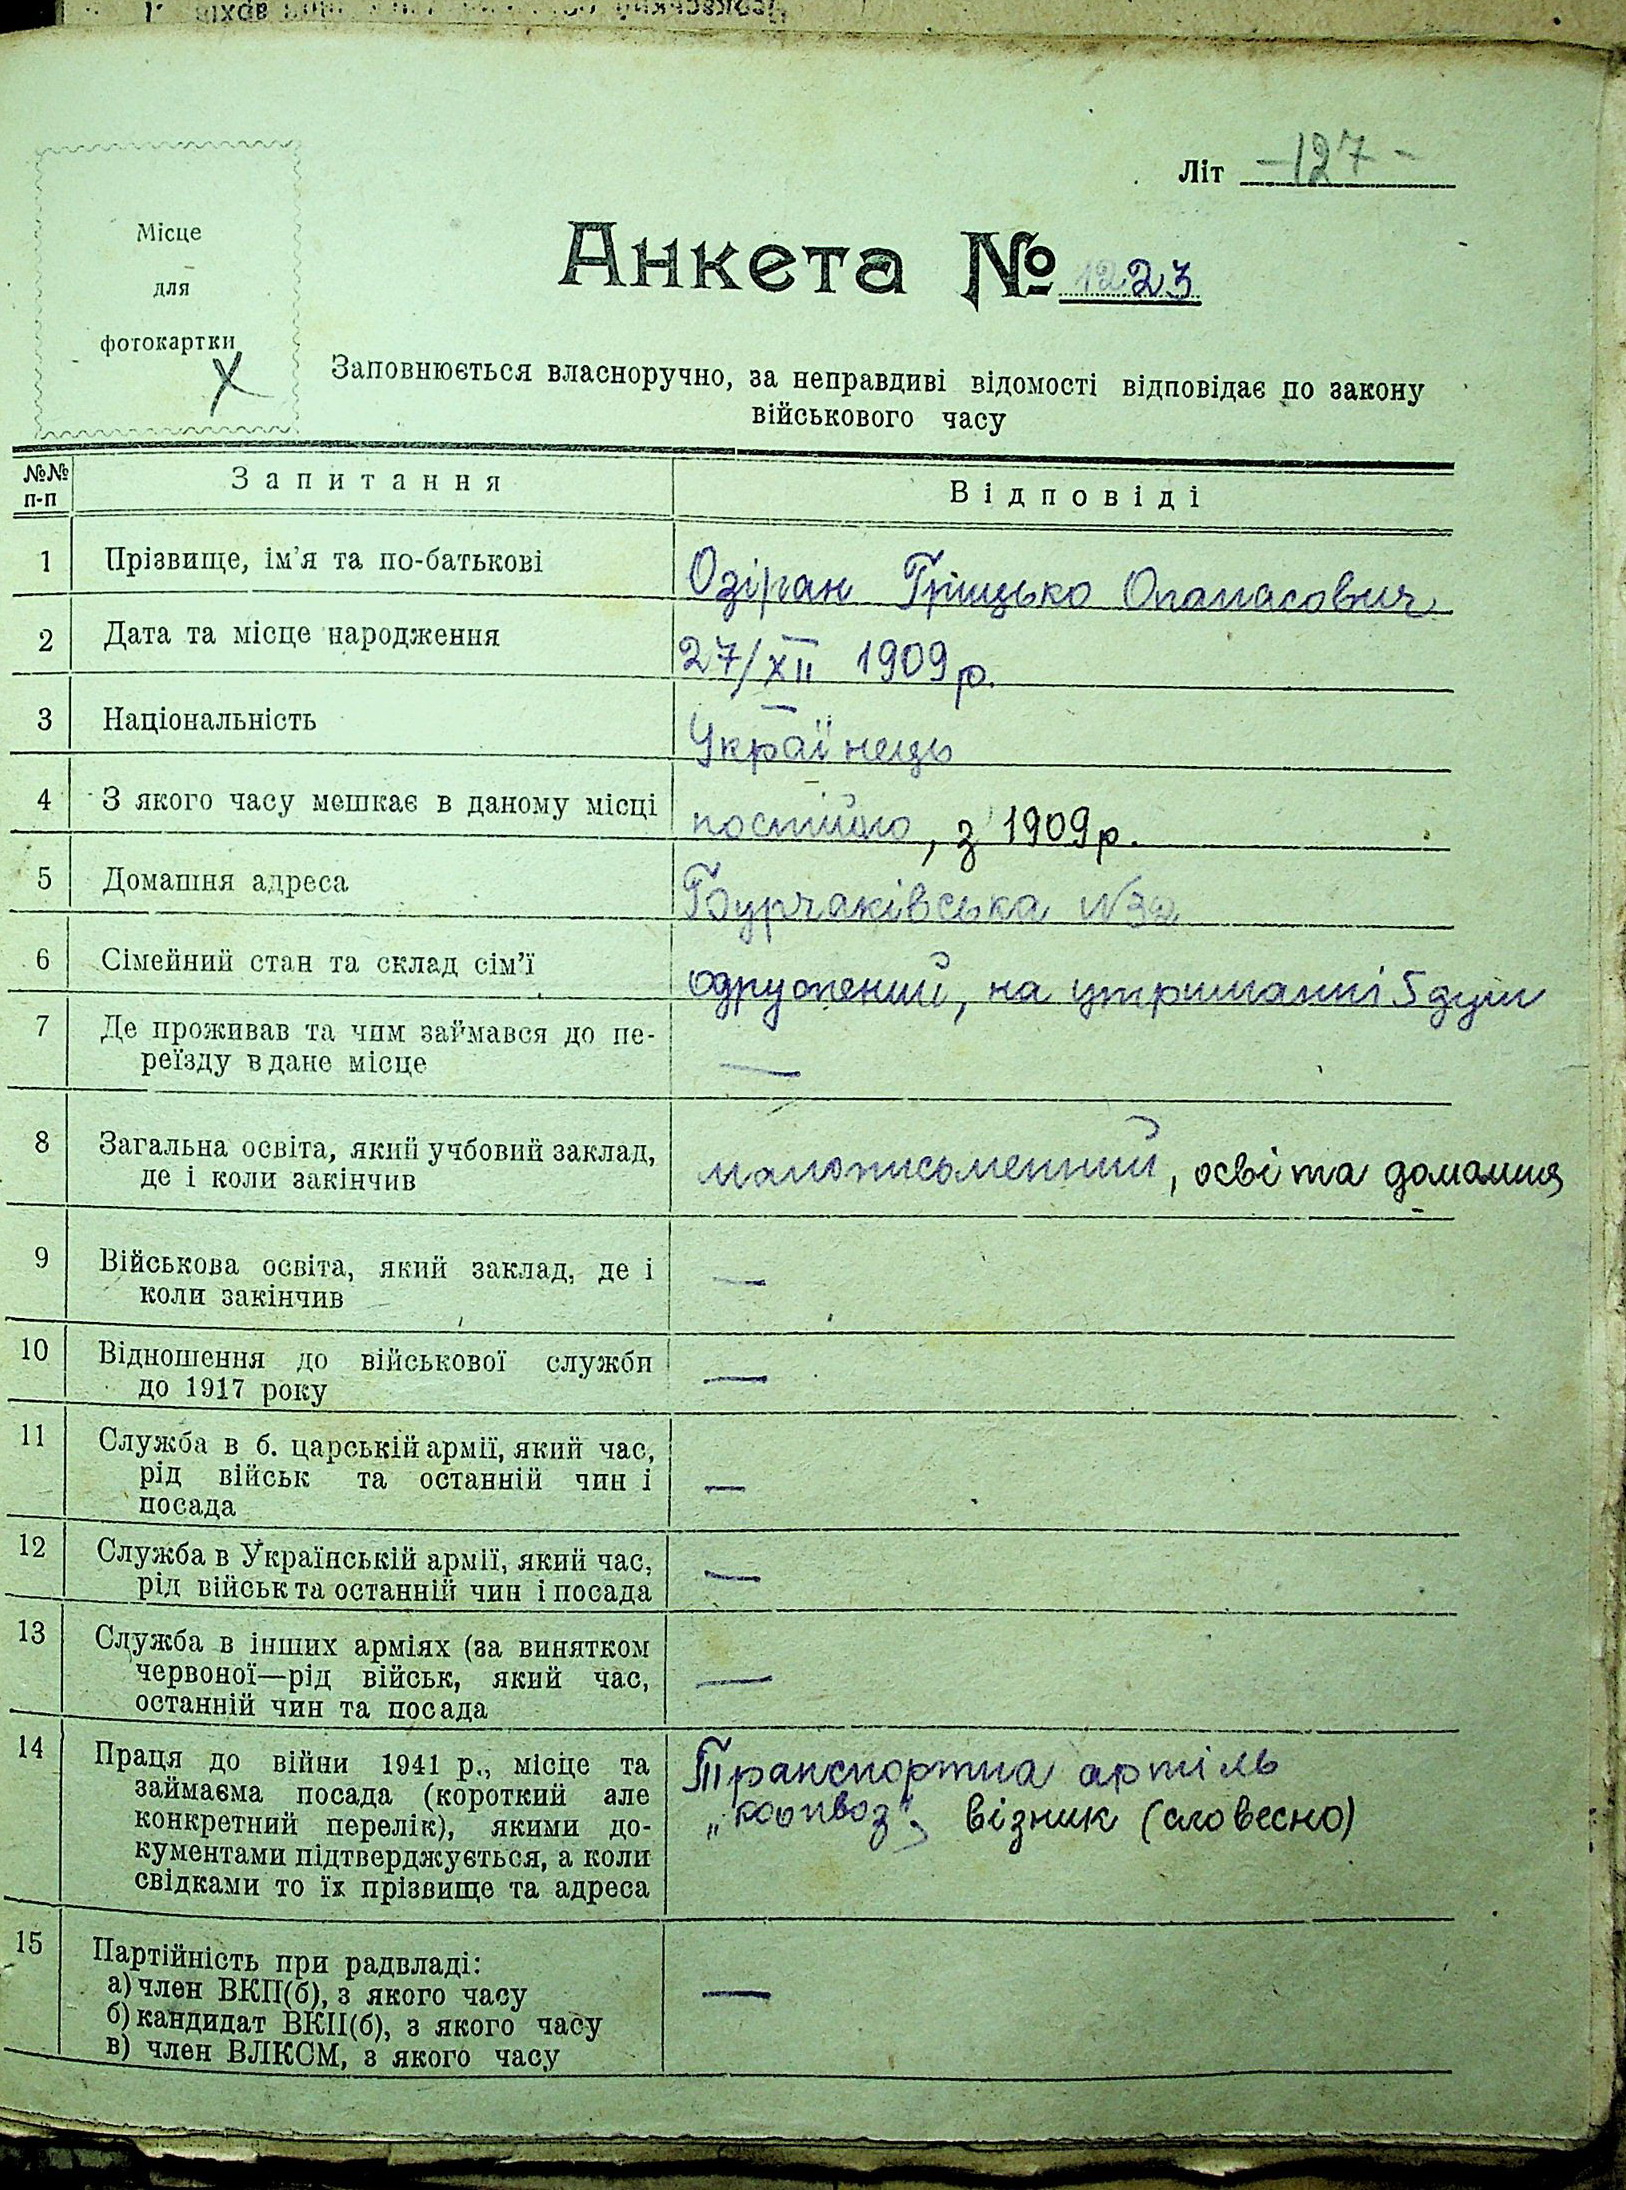 Літ -127-
Місце
для
фотокартки
Х
Анкета № 1223
Заповнюється власноручно, за неправдиві відомості відповідає по закону
військового часу
№№ п-п Запитання Відповіді
1 Прізвище, ім'я та по-батькові Озіран Гріцько Опанасович
2 Дата та місце народження 27/XII 1909 р.
3 Національність Українець
4 З якого часу мешкає в даному місці постійно, з 1909 р.
5 Домашня адреса Бурчаківська №32
6 Сімейний стан та склад сім'ї одружений, на утриманні 5 душ
7 Де проживав та чим займався до пе-
реїзду в дане місце —
8 Загальна освіта, який учбовий заклад,
де і коли закінчив малописьменний, освіта домашня
9 Військова освіта, який заклад, де і
коли закінчив —
10 Відношення до військової служби
до 1917 року —
11 Служба в б. царській армії, який час,
рід військ та останній чин і
посада —
12 Служба в Українській армії, який час,
рід військ та останній чин і посада —
13 Служба в інших арміях (за винятком
червоної—рід військ, який час,
останній чин та посада —
14 Праця до війни 1941 р., місце та
займаєма посада (короткий але
конкретний перелік), якими до-
кументами підтверджується, а коли
свідками то їх прізвище та адреса
Транспортна артіль
„коопвоз", візник (словесно)
15 Партійність при радвладі: —
а) член ВКП(б), з якого часу
б) кандидат ВКП(б), з якого часу
в) член ВЛКСМ, з якого часу